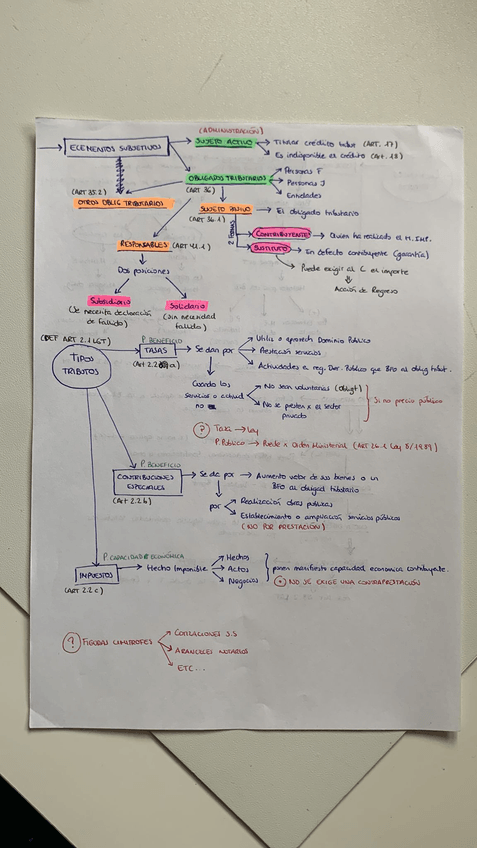 (ADMINISTRACIÓN)
ELEMENTOS SUBJETIVOS
SUJETO ACTIVO
Titular crédito tribut (ART. 17)
Es indisponible el crédito (Art. 18)
OBLIGADOS TRIBUTARIOS
(ART 36)
Personas F
Personas J
Entidades
(ART 35.2)
OTROS OBLIG TRIBUTARIOS
SUJETO PASIVO
(ART 36.1)
El obligado tributario
2 FORMAS
CONTRIBUYENTE
Quien ha realizado el H. IMP.
SUSTITUTO
En defecto contribuyente (garantía)
Puede exigir al C el importe
Acción de Regreso
RESPONSABLES (ART 41.1)
Dos posiciones
Subsidiario
(Se necesita declaración de fallido)
Solidario
(sin necesidad fallido)
(DEF ART 2.1 LGT)
TIPOS TRIBUTOS
P. BENEFICIO
TASAS
(Art 2.2 a)
Se dan por
Utiliz o aprovech Dominio Público
Prestación servicios
Actividades a reg. Der. Público que BFO al oblig tribut.
Cuando los servicios o activid no
No sean voluntarios (Obligt)
No se presten x el sector privado
Si no precio público
? Tasa → Ley
P. Público → Puede x Orden Ministerial (ART 26.1 Ley 8/1989)
P. BENEFICIO
CONTRIBUCIONES ESPECIALES
(Art 2.2 b)
Se da por → Aumento valor de sus bienes o un BFO al obligad tributario
por
Realización obras públicas
Establecimiento o ampliación servicios públicos
(NO POR PRESTACIÓN)
P. CAPACIDAD ECONÓMICA
IMPUESTOS
(ART 2.2 c)
Hecho Imponible
Hechos
Actos
Negocios
ponen manifiesto capacidad económica contribuyente.
NO SE EXIGE UNA CONTRAPRESTACIÓN
? FIGURAS LIMÍTROFES
COTIZACIONES S.S
ARANCELES NOTARIOS
ETC...